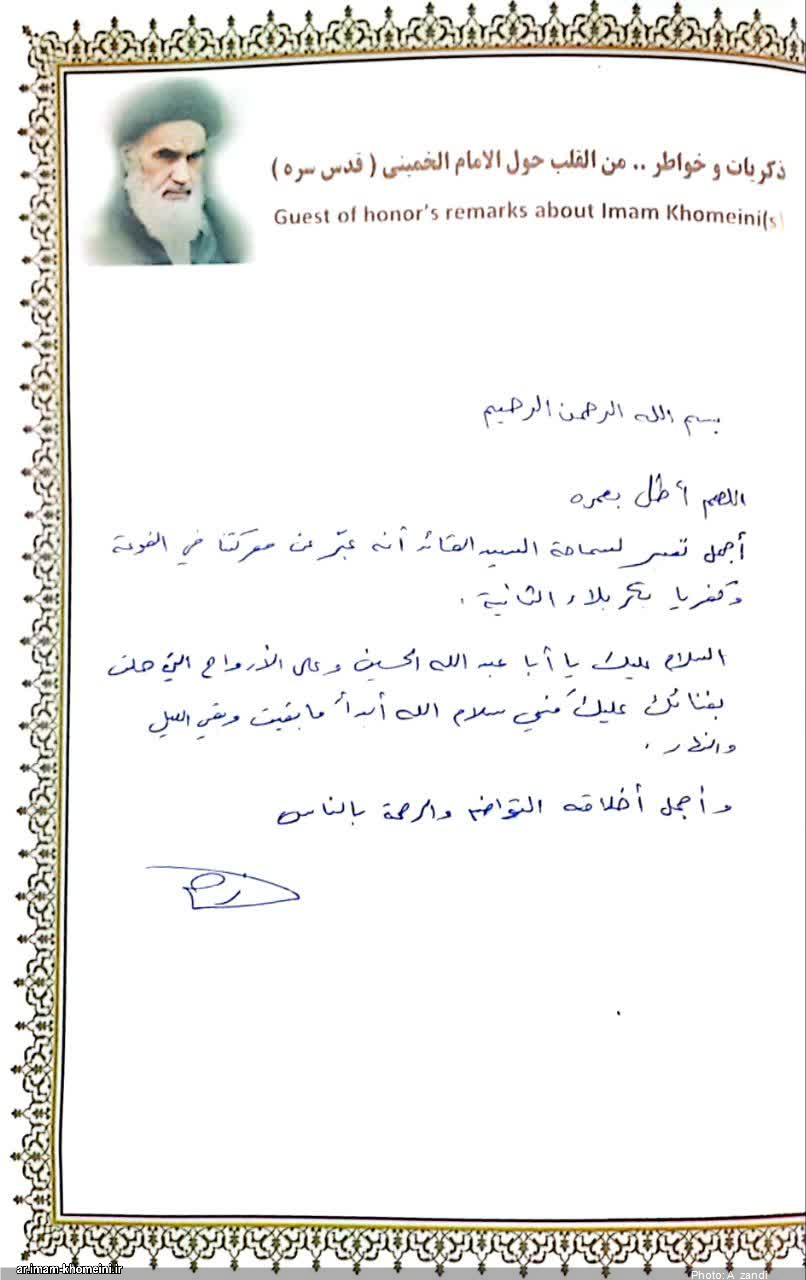 ذكريات و خواطر .. من القلب حول الامام الخميني ( قدس سره )
Guest of honor's remarks about Imam Khomeini(s)
بسم الله الرحمن الرحيم
اللهم أطل بعمره
أجمل تعبير لسماحة السيد القائد أنه عبّر عن معركتنا في الفوعة
وكفريا بكربلاء الثانية .
السلام عليك يا أبا عبد الله الحسين وعلى الأرواح التي حلت
بفنائك عليك مني سلام الله أبداً ما بقيت وبقي الليل
والنهار .
وأجمل أخلاقه التواضع والرحمة بالناس
ar.imam-khomeini.ir
Photo: A zandi